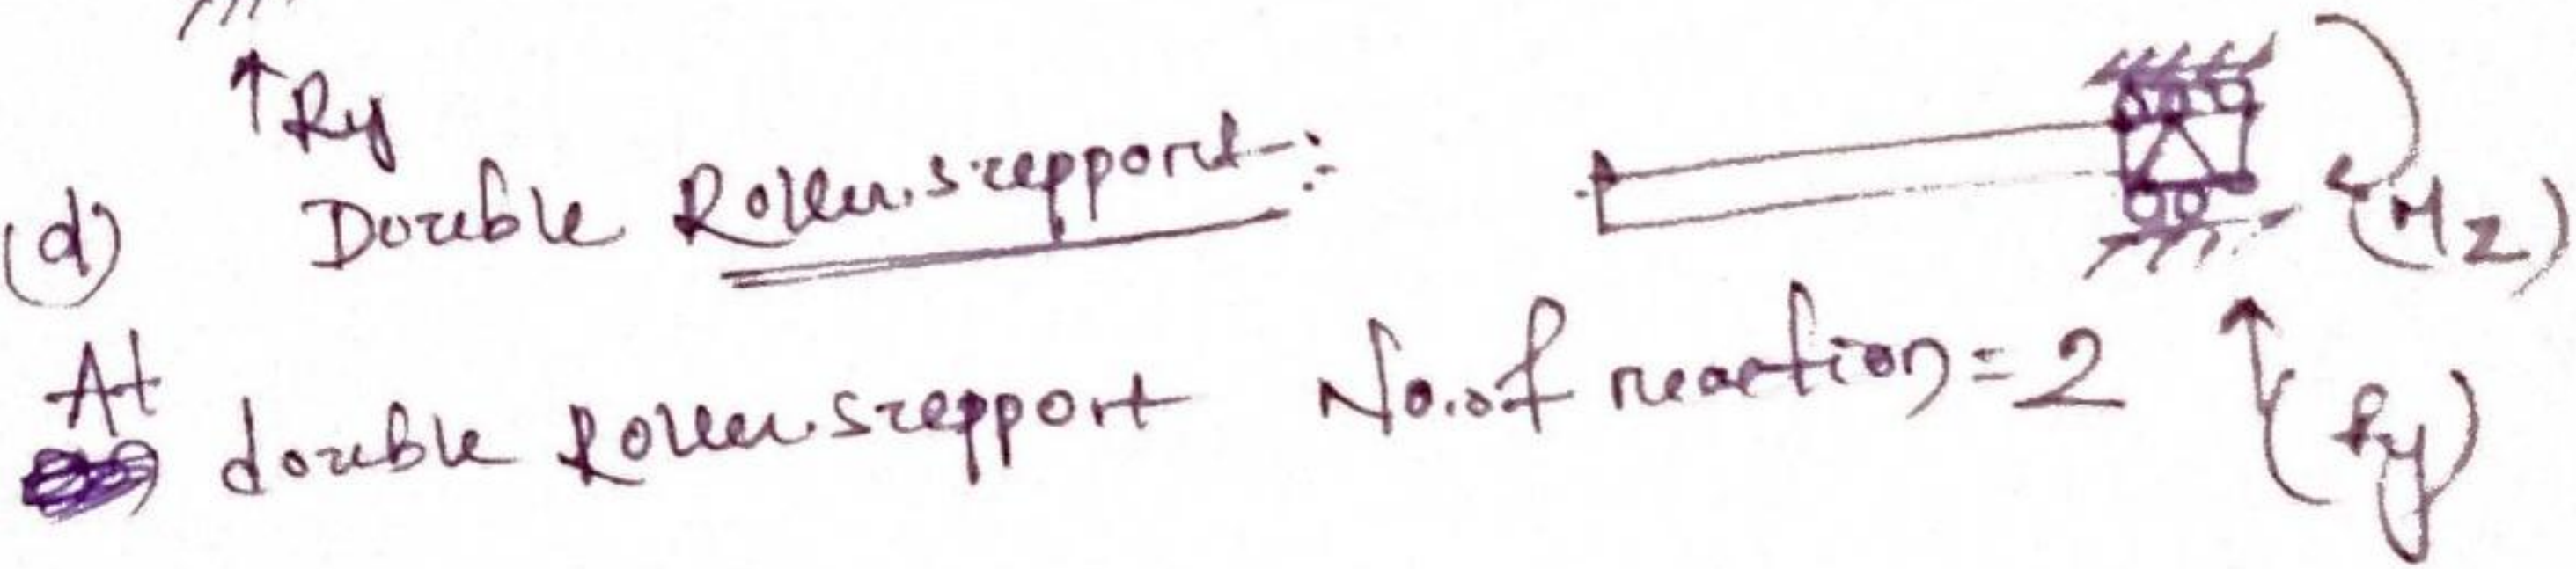 ↑Ry
(d) Double Roller support-:
(Mz)
At double Roller support No. of reaction = 2 ↑(Ry)